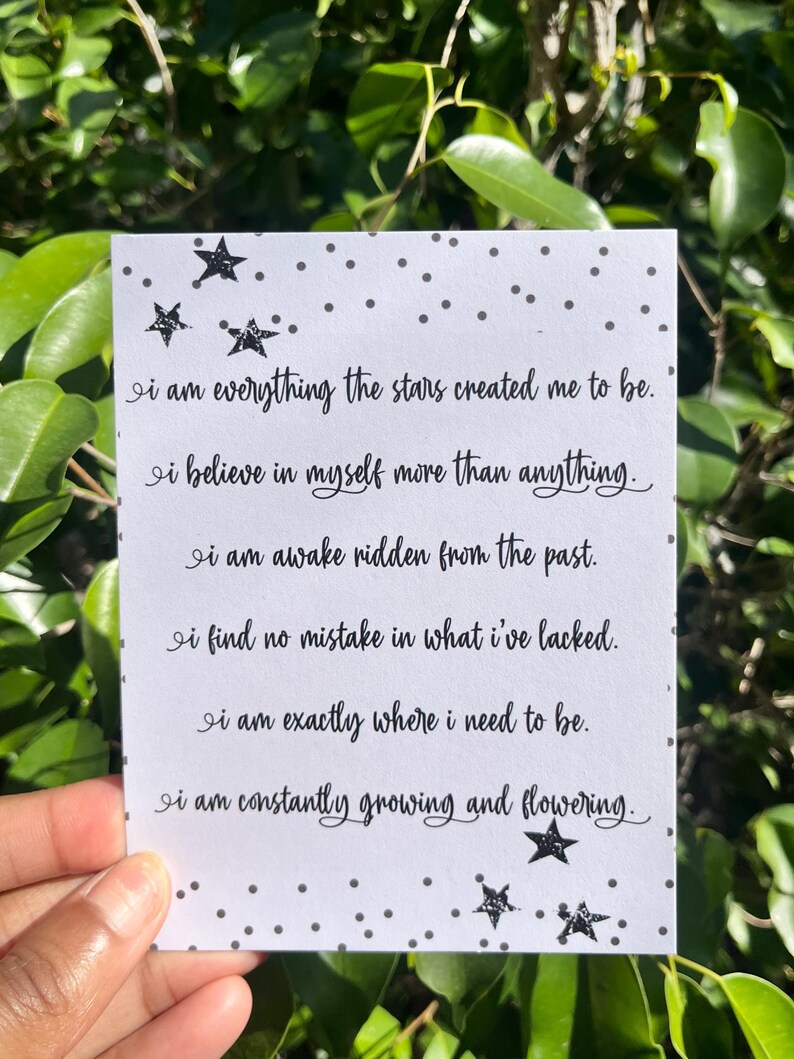 i am everything the stars created me to be.
i believe in myself more than anything.
i am awake ridden from the past.
i find no mistake in what i've lacked.
i am exactly where i need to be.
i am constantly growing and flowering.